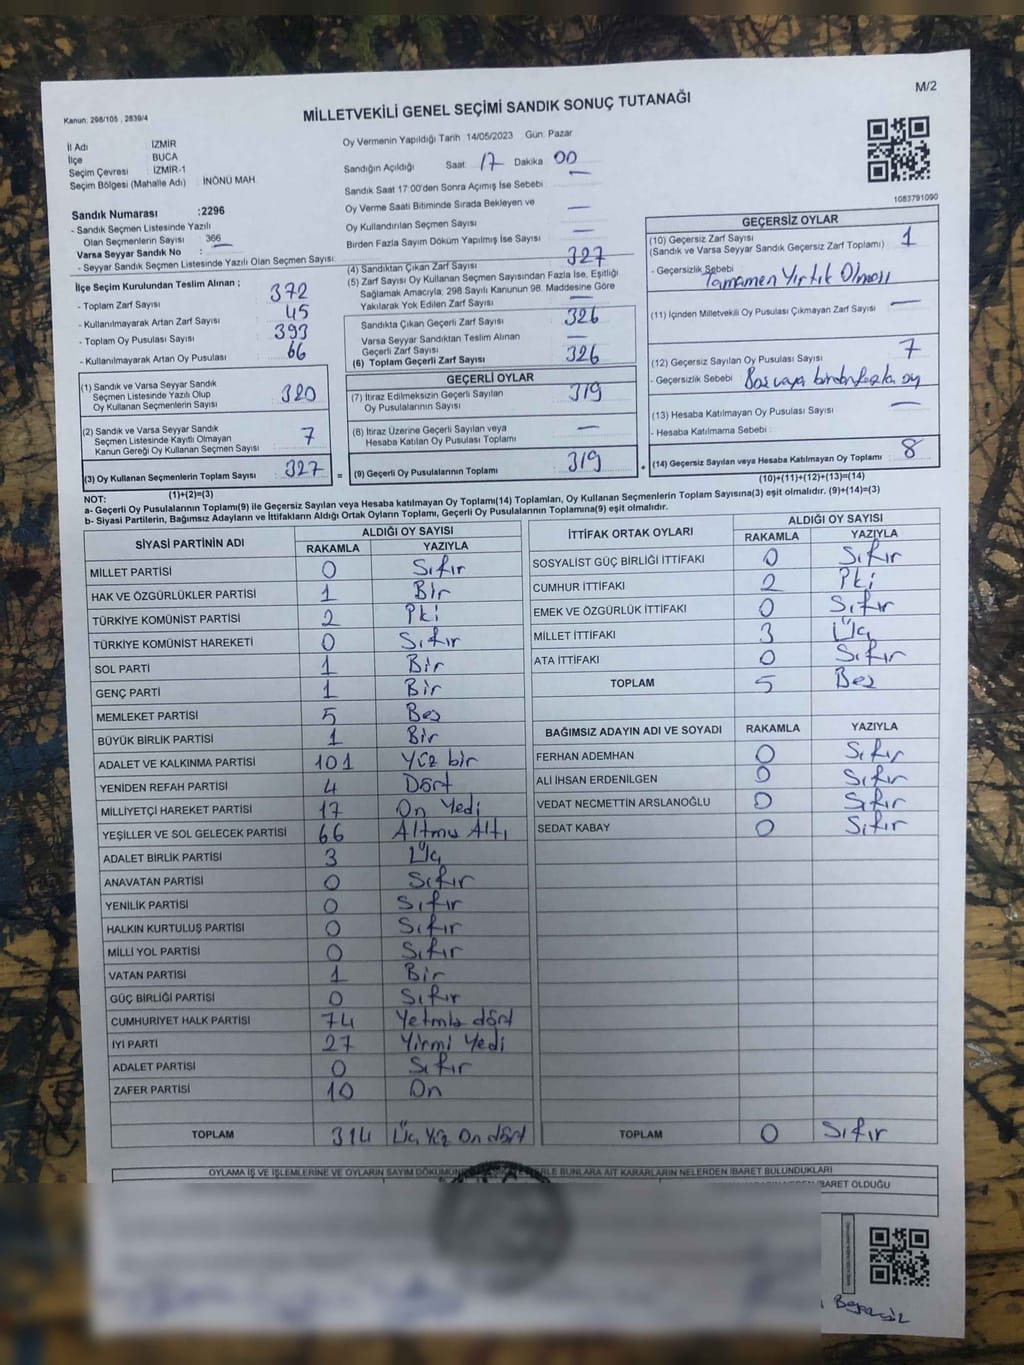 M/2
MİLLETVEKİLİ GENEL SEÇİMİ SANDIK SONUÇ TUTANAĞI
Kanun: 298/105 , 2839/4
İl Adı : İZMİR
İlçe : BUCA
Seçim Çevresi : İZMİR-1
Seçim Bölgesi (Mahalle Adı) : İNÖNÜ MAH
Sandık Numarası :2296
- Sandık Seçmen Listesinde Yazılı
Olan Seçmenlerin Sayısı : 366
Varsa Seyyar Sandık No :
- Seyyar Sandık Seçmen Listesinde Yazılı Olan Seçmen Sayısı:
İlçe Seçim Kurulundan Teslim Alınan ;
- Toplam Zarf Sayısı : 372
- Kullanılmayarak Artan Zarf Sayısı : 45
- Toplam Oy Pusulası : 393
- Kullanılmayarak Artan Oy Pusulası : 66
(1) Sandık ve Varsa Seyyar Sandık
Seçmen Listesinde Yazılı Olup
Oy Kullanan Seçmenlerin Sayısı : 320
(2) Sandık ve Varsa Seyyar Sandık
Seçmen Listesinde Kayıtlı Olmayan
Kanun Gereği Oy Kullanan Seçmen Sayısı : 7
(3) Oy Kullanan Seçmenlerin Toplam Sayısı : 327 =
(1)+(2)=(3)
Oy Vermenin Yapıldığı Tarih 14/05/2023 Gün: Pazar
Sandığın Açıldığı Saat 17 Dakika 00
Sandık Saat 17:00'den Sonra Açımış İse Sebebi : —
Oy Verme Saati Bitiminde Sırada Bekleyen ve
Oy Kullandırılan Seçmen Sayısı : —
Birden Fazla Sayım Döküm Yapılmış İse Sayısı : —
(4) Sandıktan Çıkan Zarf Sayısı : 327
(5) Zarf Sayısı Oy Kullanan Seçmen Sayısından Fazla İse, Eşitliği
Sağlamak Amacıyla, 298 Sayılı Kanunun 98. Maddesine Göre
Yakılarak Yok Edilen Zarf Sayısı : —
Sandıkta Çıkan Geçerli Zarf Sayısı : 326
Varsa Seyyar Sandıktan Teslim Alınan
Geçerli Zarf Sayısı : —
(6) Toplam Geçerli Zarf Sayısı : 326
GEÇERLİ OYLAR
(7) İtiraz Edilmeksizin Geçerli Sayılan
Oy Pusulalarının Sayısı : 319
(8) İtiraz Üzerine Geçerli Sayılan veya
Hesaba Katılan Oy Pusulası Toplamı : —
(9) Geçerli Oy Pusulalarının Toplamı : 319 +
1083791090
GEÇERSİZ OYLAR
(10) Geçersiz Zarf Sayısı : 1
(Sandık ve Varsa Seyyar Sandık Geçersiz Zarf Toplamı)
- Geçersizlik Sebebi : Tamamen Yırtık Olması
(11) İçinden Milletvekili Oy Pusulası Çıkmayan Zarf Sayısı : —
(12) Geçersiz Sayılan Oy Pusulası Sayısı : 7
- Geçersizlik Sebebi : Boş veya birden fazla oy
(13) Hesaba Katılmayan Oy Pusulası Sayısı : —
- Hesaba Katılmama Sebebi :
(14) Geçersiz Sayılan veya Hesaba Katılmayan Oy Toplamı : 8
(10)+(11)+(12)+(13)=(14)
NOT:
a- Geçerli Oy Pusulalarının Toplamı(9) ile Geçersiz Sayılan veya Hesaba katılmayan Oy Toplamı(14) Toplamları, Oy Kullanan Seçmenlerin Toplam Sayısına(3) eşit olmalıdır. (9)+(14)=(3)
b- Siyasi Partilerin, Bağımsız Adayların ve İttifakların Aldığı Ortak Oyların Toplamı, Geçerli Oy Pusulalarının Toplamına(9) eşit olmalıdır.
SİYASİ PARTİNİN ADI ALDIĞI OY SAYISI
RAKAMLA YAZIYLA
MİLLET PARTİSİ 0 Sıfır
HAK VE ÖZGÜRLÜKLER PARTİSİ 1 Bir
TÜRKİYE KOMÜNİST PARTİSİ 2 İki
TÜRKİYE KOMÜNİST HAREKETİ 0 Sıfır
SOL PARTİ 1 Bir
GENÇ PARTİ 1 Bir
MEMLEKET PARTİSİ 5 Beş
BÜYÜK BİRLİK PARTİSİ 1 Bir
ADALET VE KALKINMA PARTİSİ 101 Yüz bir
YENİDEN REFAH PARTİSİ 4 Dört
MİLLİYETÇİ HAREKET PARTİSİ 17 On Yedi
YEŞİLLER VE SOL GELECEK PARTİSİ 66 Altmış Altı
ADALET BİRLİK PARTİSİ 3 Üç
ANAVATAN PARTİSİ 0 Sıfır
YENİLİK PARTİSİ 0 Sıfır
HALKIN KURTULUŞ PARTİSİ 0 Sıfır
MİLLİ YOL PARTİSİ 0 Sıfır
VATAN PARTİSİ 1 Bir
GÜÇ BİRLİĞİ PARTİSİ 0 Sıfır
CUMHURİYET HALK PARTİSİ 74 Yetmiş dört
İYİ PARTİ 27 Yirmi Yedi
ADALET PARTİSİ 0 Sıfır
ZAFER PARTİSİ 10 On
TOPLAM 314 Üç Yüz On dört
İTTİFAK ORTAK OYLARI ALDIĞI OY SAYISI
RAKAMLA YAZIYLA
SOSYALİST GÜÇ BİRLİĞİ İTTİFAKI 0 Sıfır
CUMHUR İTTİFAKI 2 İki
EMEK VE ÖZGÜRLÜK İTTİFAKI 0 Sıfır
MİLLET İTTİFAKI 3 Üç
ATA İTTİFAKI 0 Sıfır
TOPLAM 5 Beş
BAĞIMSIZ ADAYIN ADI VE SOYADI RAKAMLA YAZIYLA
FERHAN ADEMHAN 0 Sıfır
ALİ İHSAN ERDENİLGEN 0 Sıfır
VEDAT NECMETTİN ARSLANOĞLU 0 Sıfır
SEDAT KABAY 0 Sıfır
TOPLAM 0 Sıfır
OYLAMA İŞ VE İŞLEMLERİNE VE OYLARIN SAYIM DÖKÜMÜNE BUNLARA AİT KARARLARIN NELERDEN İBARET BULUNDUKLARI
İBARET OLDUĞU